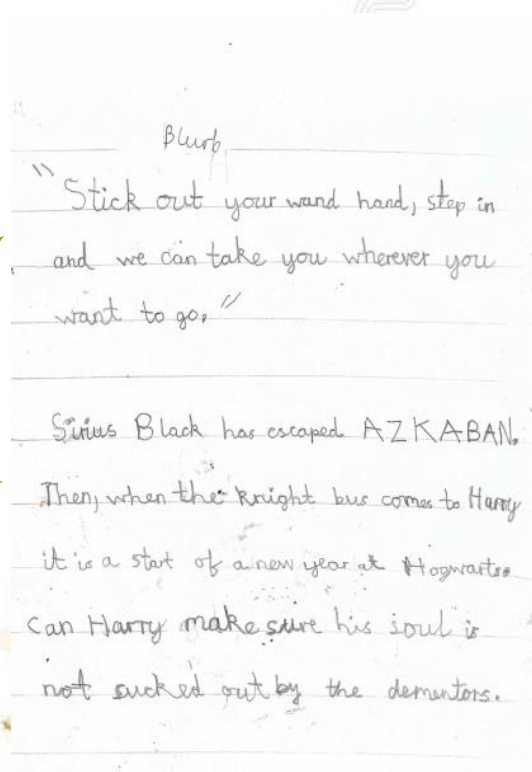 Blurb
"Stick out your wand hand, step in
and we can take you wherever you
want to go."
Sirius Black has escaped AZKABAN.
Then, when the knight bus comes to Harry
it is a start of a new year at Hogwarts.
Can Harry make sure his soul is
not sucked out by the dementors.